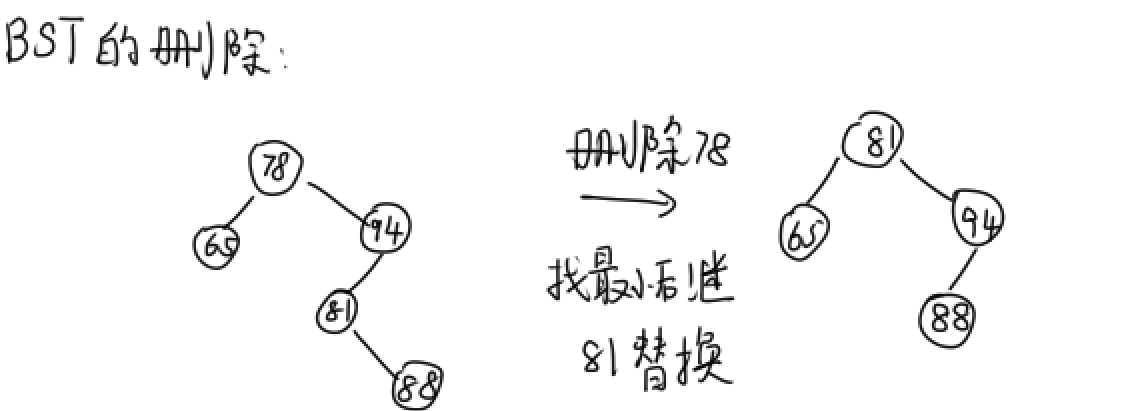 BST的删除:
78
65
94
81
88
删除78
找最小后继
81替换
81
65
94
88